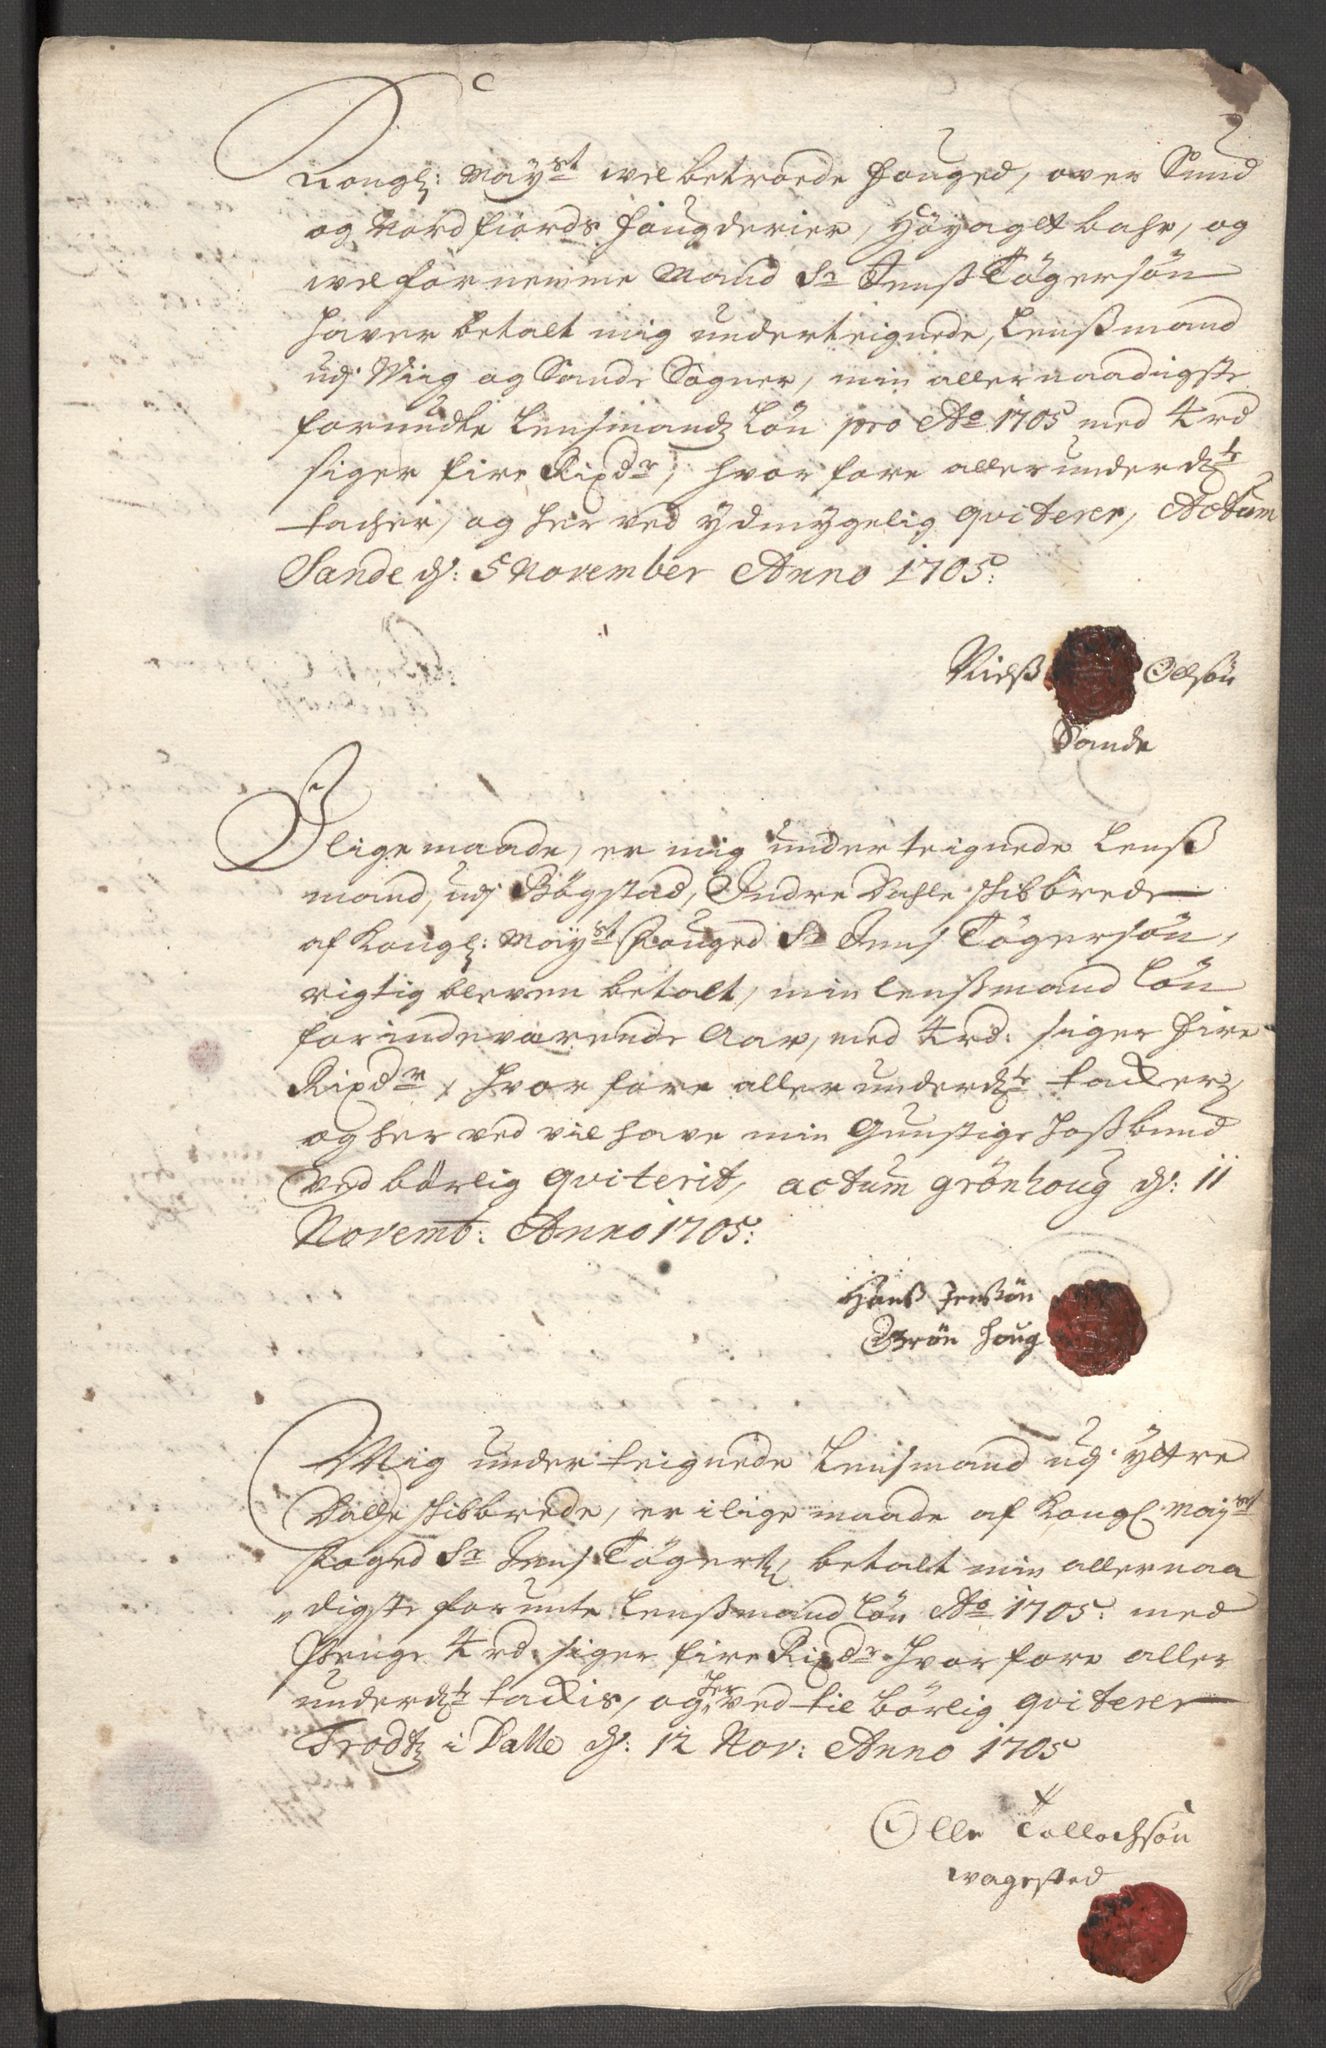 Kongl: Mayst velbetroede Fouged, over Sund
og Nordfiords fougderier, Høyagtbahr, og
velfornemme Mand Sr Jenß Tøgersøn
haver betalt mig underteignede, Lenßmand
udj Viig og Sande Sogner, min allernaadigste
forundte Lensmandz Løn pro Ao 1705 med 4 rd
siger fire Rixdr, hvorfore allerunderdt
tacher, og her ved ydmygelig qviterer, Actum
Sande d: 5 November Anno 1705:
Nielß Olsøn
Sande
I lige maade, er mig underteignede Lenß
mand, udj Bøgstad, Indre Dahle skibbrede
af Kongl: Mayst Fouged Sr Jens Tøgersøn,
rigtig bleven betalt, min lenßmand Løn
for indeværende Aar, med 4 rd: siger fire
Rixdr, hvorfore allerunderdt tacker,
og her ved vil have min Gunstige Hoßbund
ved børlig qviterit, actum grønhoug d: 11
Novemb: Anno 1705:
Hanß Jenßøn
Grøn houg
Mig underteignede Lensmand udj yttre
Dalle skibbrede, er i lige maade af Kongl Mayst
Foged Sr Jens Tøgers betalt min allernaa
digste forunte Lenßmand Løn Ao 1705: med
Penge 4 rd. siger fire Rixdr hvorfore aller
underdt tackis, og her ved til børlig qviterer
Trodtz i Dalle d: 12 Nov: Anno 1705
Olle Tollochsøn
Vagested